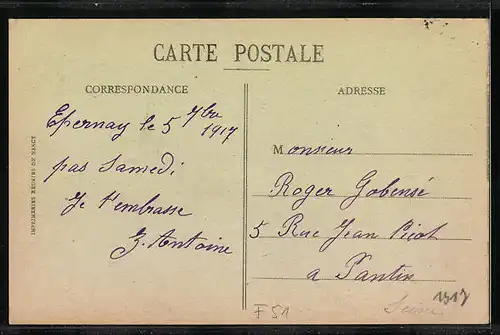 CARTE POSTALE
CORRESPONDANCE
ADRESSE
Epernay le 5 7bre 1917
pas Samedi
Je t'embrasse
Z. Antoine
Monsieur
Roger Gobensé
5 Rue Jean Picot
a Pantin
Seine
1917
F 51
IMPRIMERIES RÉUNIES DE NANCY